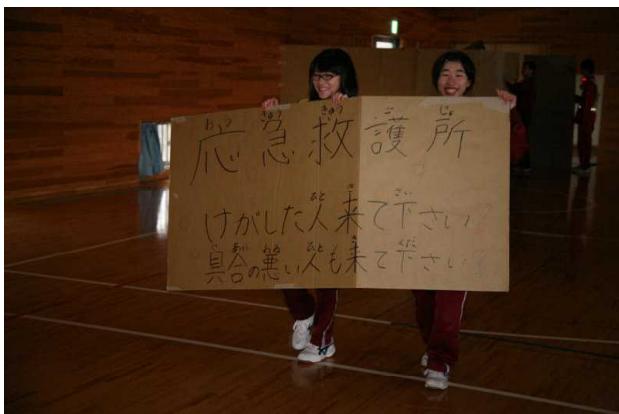 応急救護所
けがした人来て下さい
具合の悪い人も来て下さい